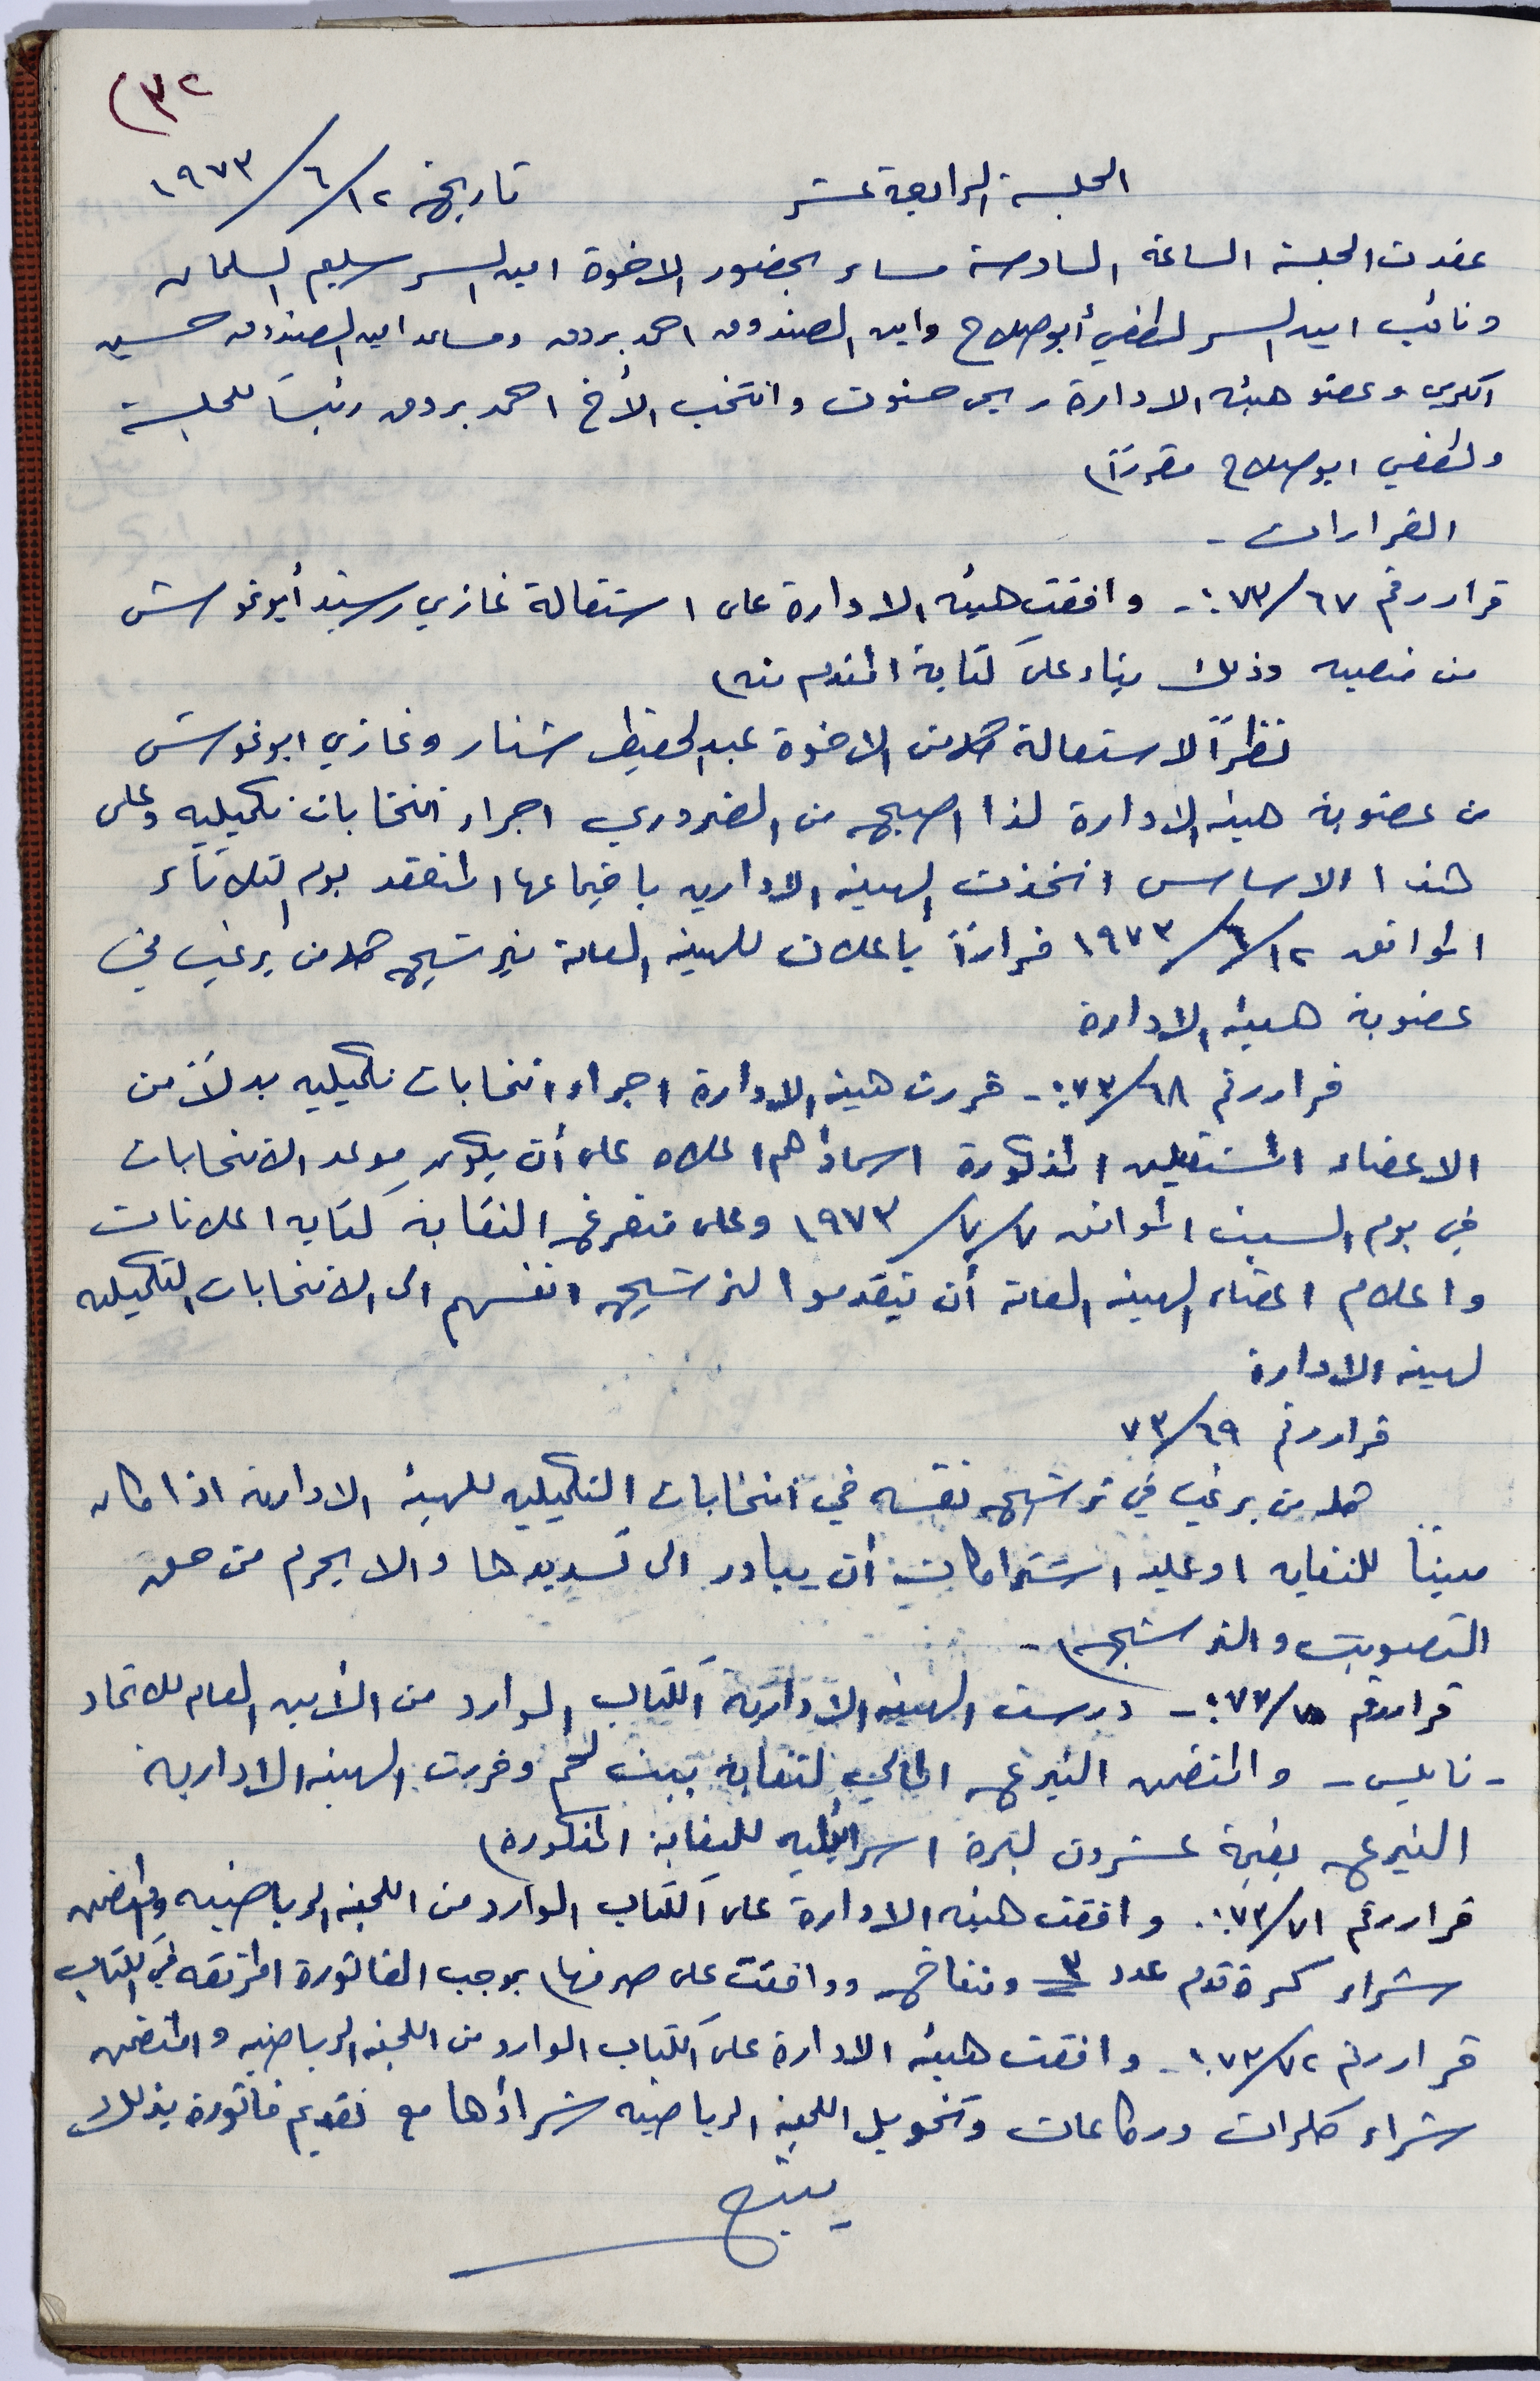 (٣٢
الجلسة الرابعة عشر تاريخ ١٢/٦/١٩٧٣
عقدت الجلسة الساعة السادسة مساء بحضور الاخوة امين السر سليم السلمان
ونائب امين السر لطفي أبو صلاح وامين الصندوق احمد بردق ومساعد امين الصندوق حسين
الكردي وعضو هيئة الادارة ربحي حنون وانتخب الأخ احمد بردق رئيساً للجلسة
ولطفي ابو صلاح مقرراً
القرارات -
قرار رقم ٦٧/٧٣:- وافقت هيئة الادارة على استقالة غازي رشيد أبو غوش
من منصبه وذلك بناء على كتابة المقدم منه
نظراً لاستقالة كلا من الاخوة عبد الحفيظ شنار وغازي ابو غوش
من عضوية هيئة الادارة لذا اصبح من الضروري اجراء انتخابات تكميليه وعلى
هذا الاساس اتخذت الهيئة الادارية باجتماعها المنعقد يوم الثلاثاء
الموافق ١٢/٦/١٩٧٣ قراراً باعلان للهيئة العامة بترشيح كلا من يرغب في
عضوية هيئة الادارة
قرار رقم ٦٨/٧٣:- قررت هيئة الادارة اجراء انتخابات تكميليه بدلاً من
الاعضاء المستقيلين المذكورة اسماؤهم اعلاه على أن يكون موعد الانتخابات
في يوم السبت الموافق ٧/٧/١٩٧٣ وعلى متفرغ النقابة كتابة اعلانات
واعلام اعضاء الهيئة العامة أن يتقدموا لترشيح انفسهم الى الانتخابات التكميليه
لهيئة الادارة
قرار رقم ٦٩/٧٣
كلا من يرغب في ترشيح نفسه في انتخابات التكميليه للهيئة الادارية اذا كان
مديناً للنقابه او عليه اشتراكات أن يبادر الى تسديدها والا يحرم من حق
التصويت والترشيح -
قرار رقم ٧٠/٧٣:- درست الهيئة الادارية الكتاب الوارد من الأمين العام للاتحاد
- نابلس - والمتضمن التبرع المالي لنقابة بيت لحم وقررت الهيئة الادارية
التبرع بقيمة عشرون ليرة اسرائيليه للنقابة المذكورة
قرار رقم ٧١/٧٣:. وافقت هيئة الادارة على الكتاب الوارد من اللجنة الرياضيه والمتضمن
شراء كرة قدم عدد ٣ ومنفاخ ووافقت على صرفها بموجب الفاتورة المرفقه في الكتاب
قرار رقم ٧٢/٧٣:- وافقت هيئة الادارة على الكتاب الوارد من اللجنة الرياضيه والمتضمن
شراء كلرات وركاعات وتخويل اللجنة الرياضيه شراؤها مع تقديم فاتورة بذلك
يتبع